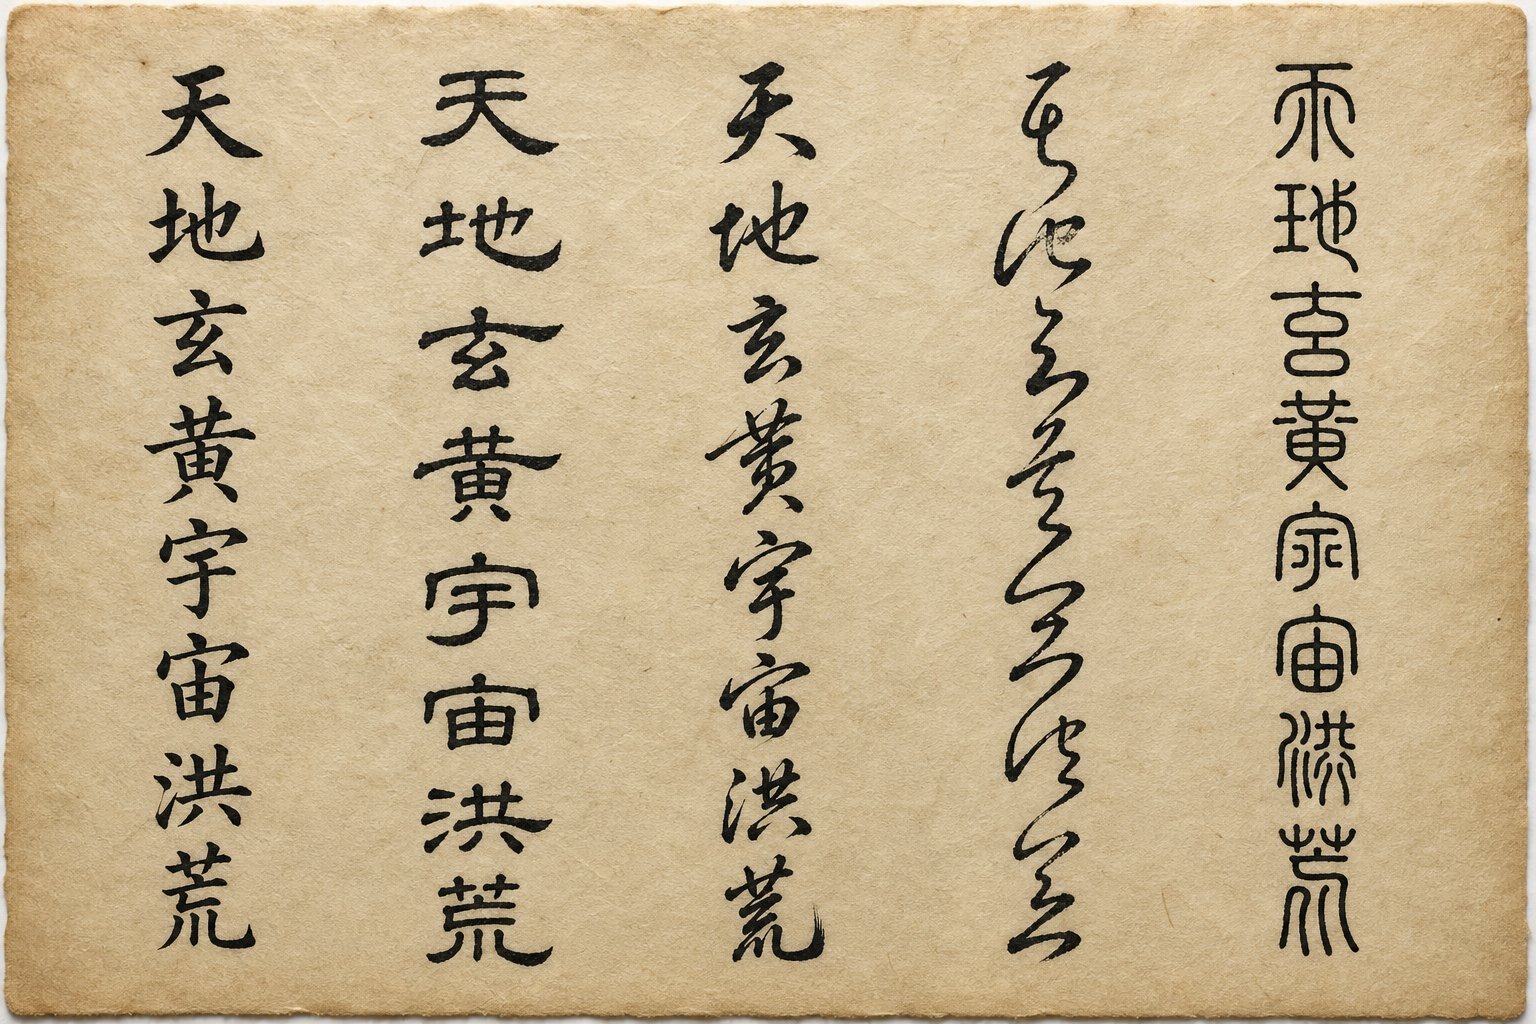 天地玄黄宇宙洪荒
天地玄
天地玄黄宇宙洪荒
天地玄黄宇宙洪荒
天地玄黄宇宙洪荒